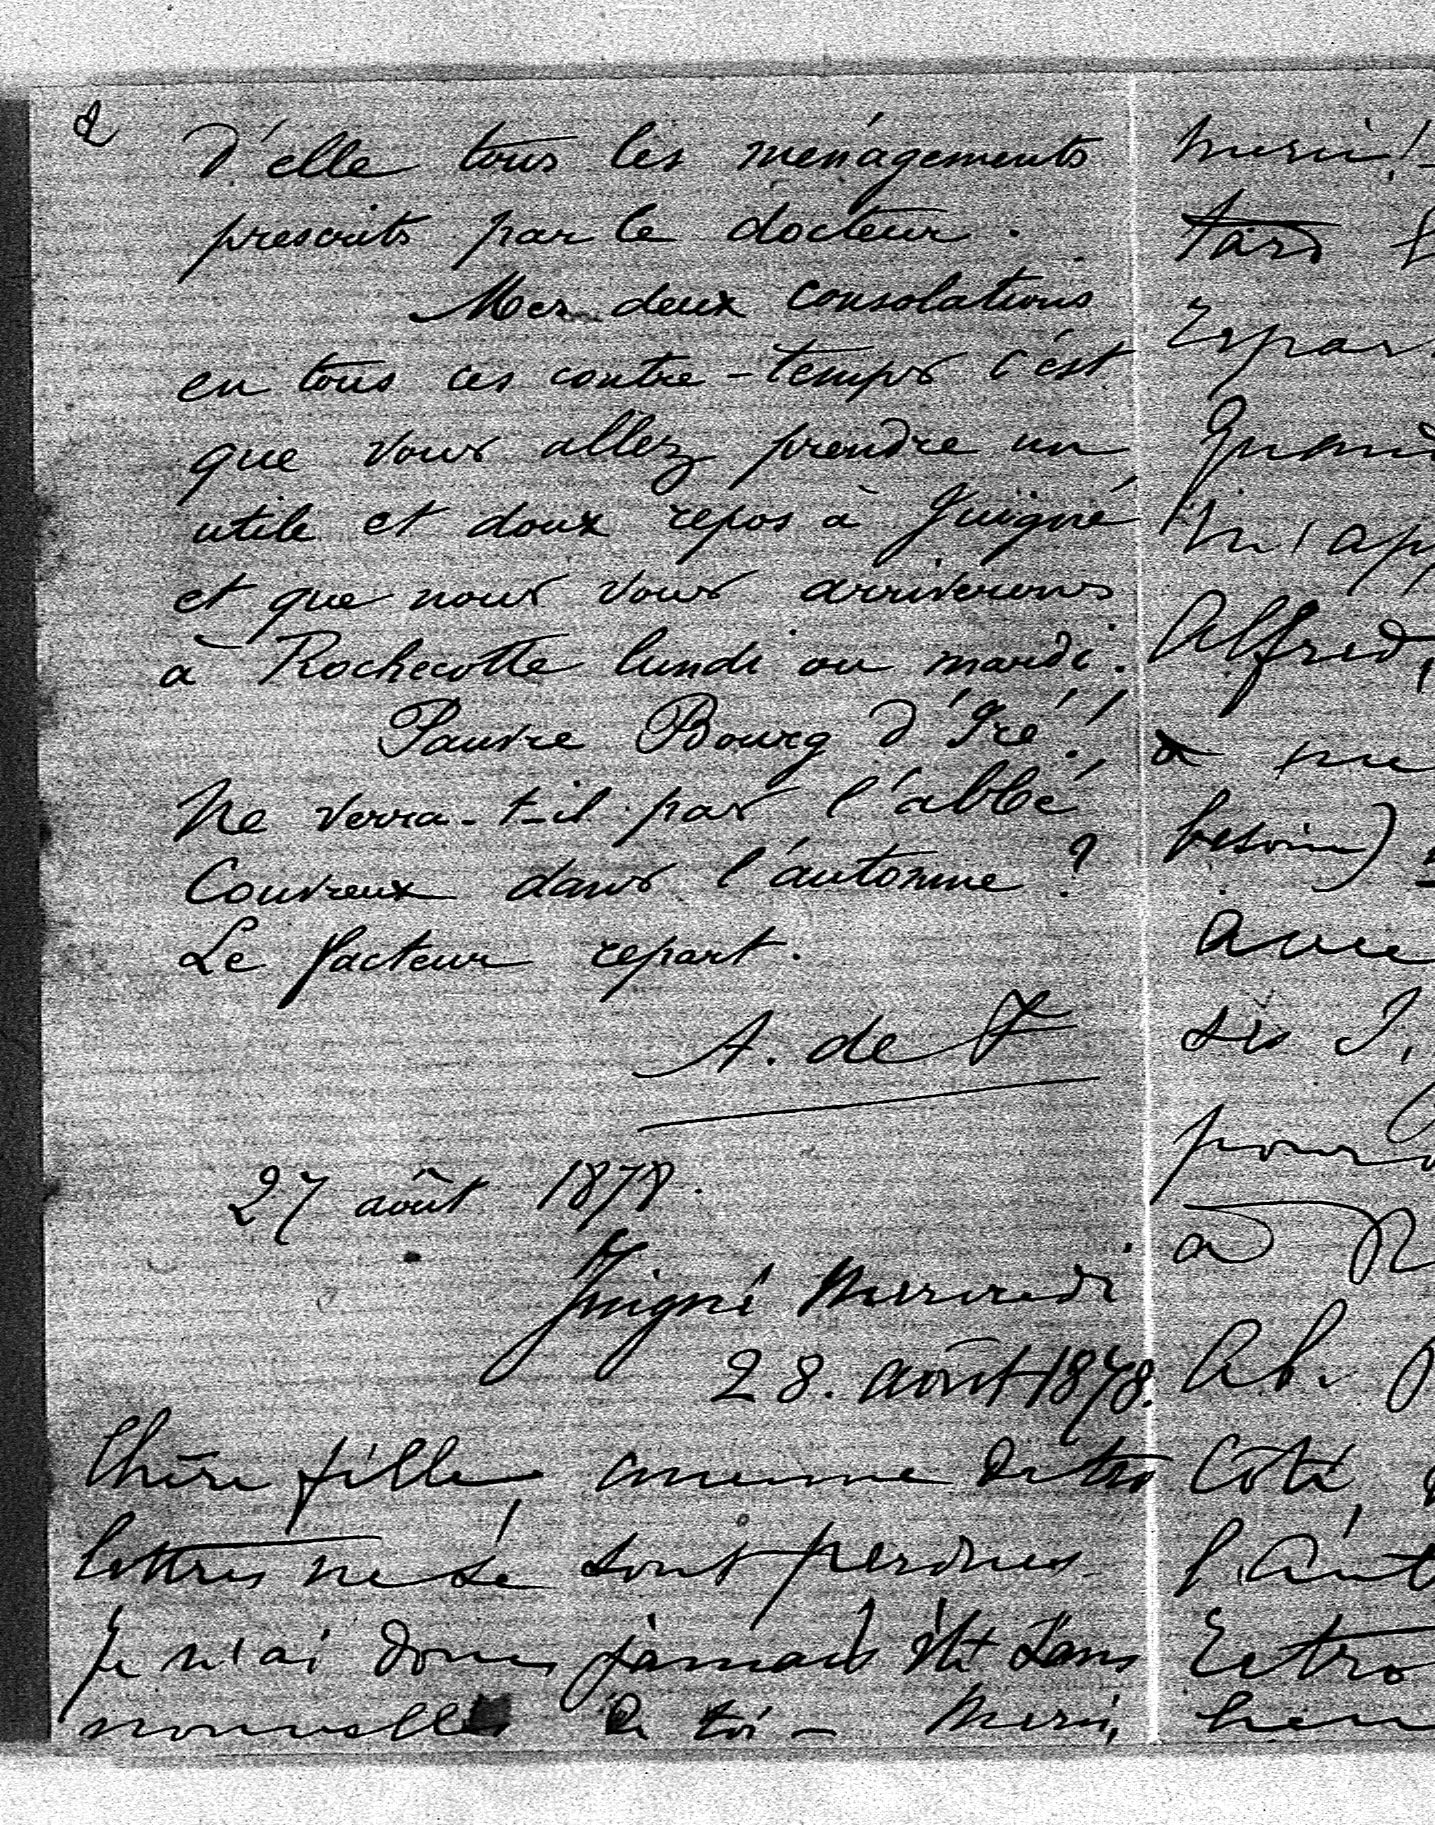 2
d'elle tous les ménagements
prescrits par le docteur.
Mes deux consolations
en tous ces contre-temps c'est
que vous allez prendre un
utile et doux repos à Juigné
et que nous vous arriverons
à Rochecotte lundi ou mardi.
Pauvre Bourg d'Iré !
Ne verra-t-il pas l'abbé
Couvreux dans l'automne ?
Le facteur repart.
A. de F
27 août 1878.
Juigné Mercredi
28. août 1878.
Chère fille, aucune de tes
lettres ne se sont perdues
Je n'ai donc jamais été sans
nouvelles de toi – Merci,
merci !
tard
Quand
m'ap
Alfred,
a me
besoin)
avec
ses J.
pour
à R
Ab.
Côté,
l'Aut
retro
heu